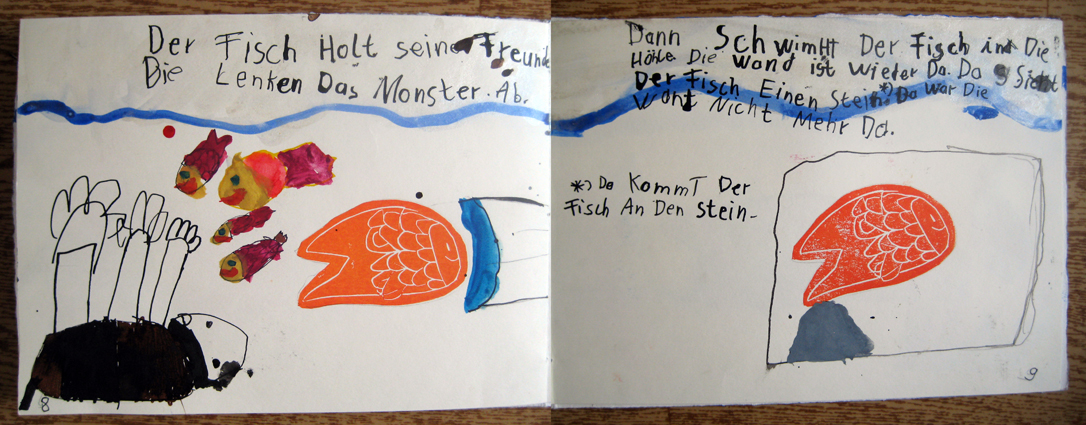 Der Fisch Holt seine Freunde
Die Lenken Das Monster. Ab.
8
Dann Schwimmt Der Fisch in Die
Höhle Die Wand ist Wieder Da. Da Sieht
Der Fisch Einen Stein. *) Da war Die
Wand Nicht Mehr Da.
*) Da KommT Der
Fisch An Den Stein-
9